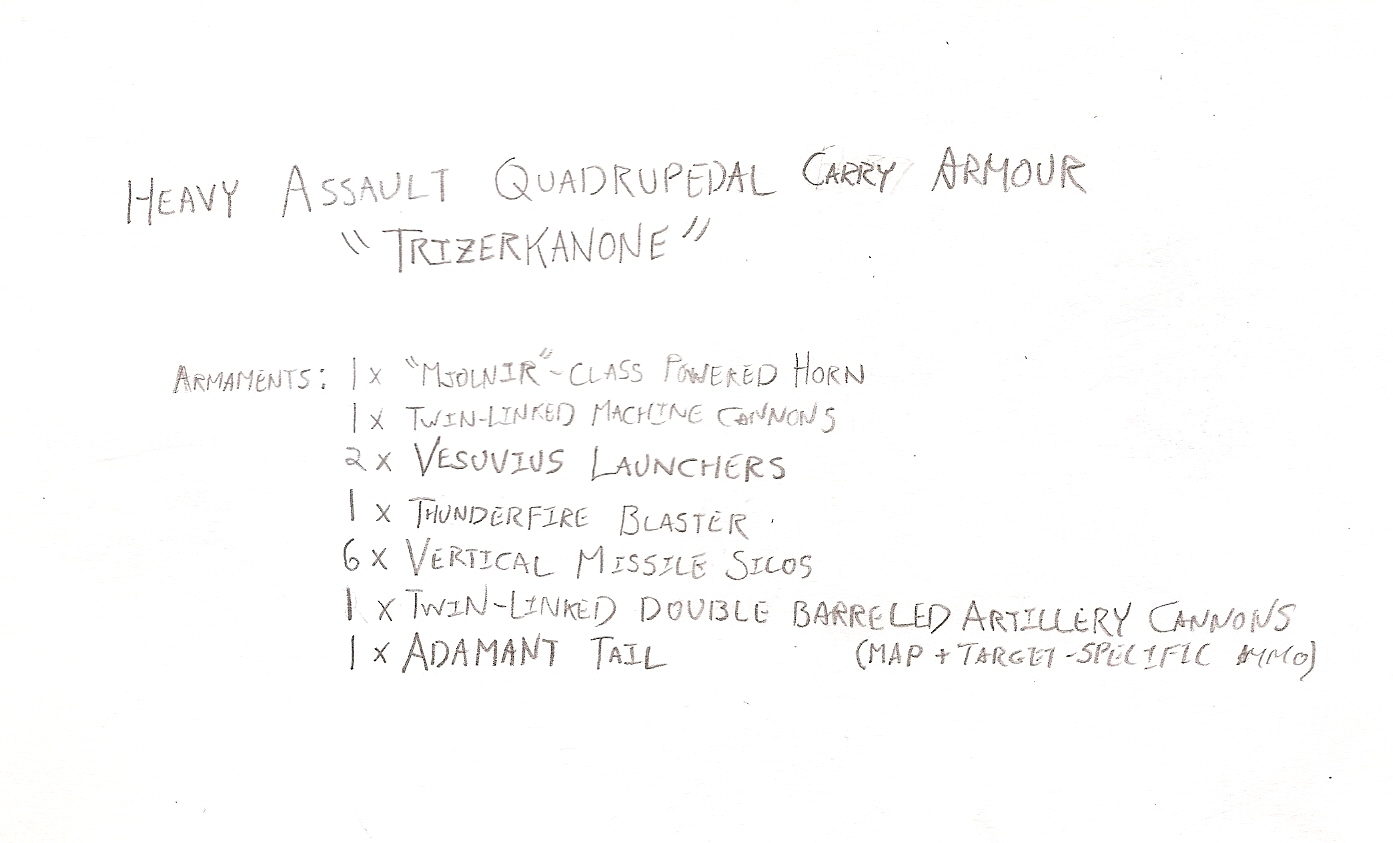 HEAVY ASSAULT QUADRUPEDAL CARRY ARMOUR
"TRIZERKANONE"
ARMAMENTS: 1 x "MJOLNIR"-CLASS POWERED HORN
1 x TWIN-LINKED MACHINE CANNONS
2 x VESUVIUS LAUNCHERS
1 x THUNDERFIRE BLASTER
6 x VERTICAL MISSILE SILOS
1 x TWIN-LINKED DOUBLE BARRELED ARTILLERY CANNONS
1 x ADAMANT TAIL (MAP + TARGET-SPECIFIC AMMO)